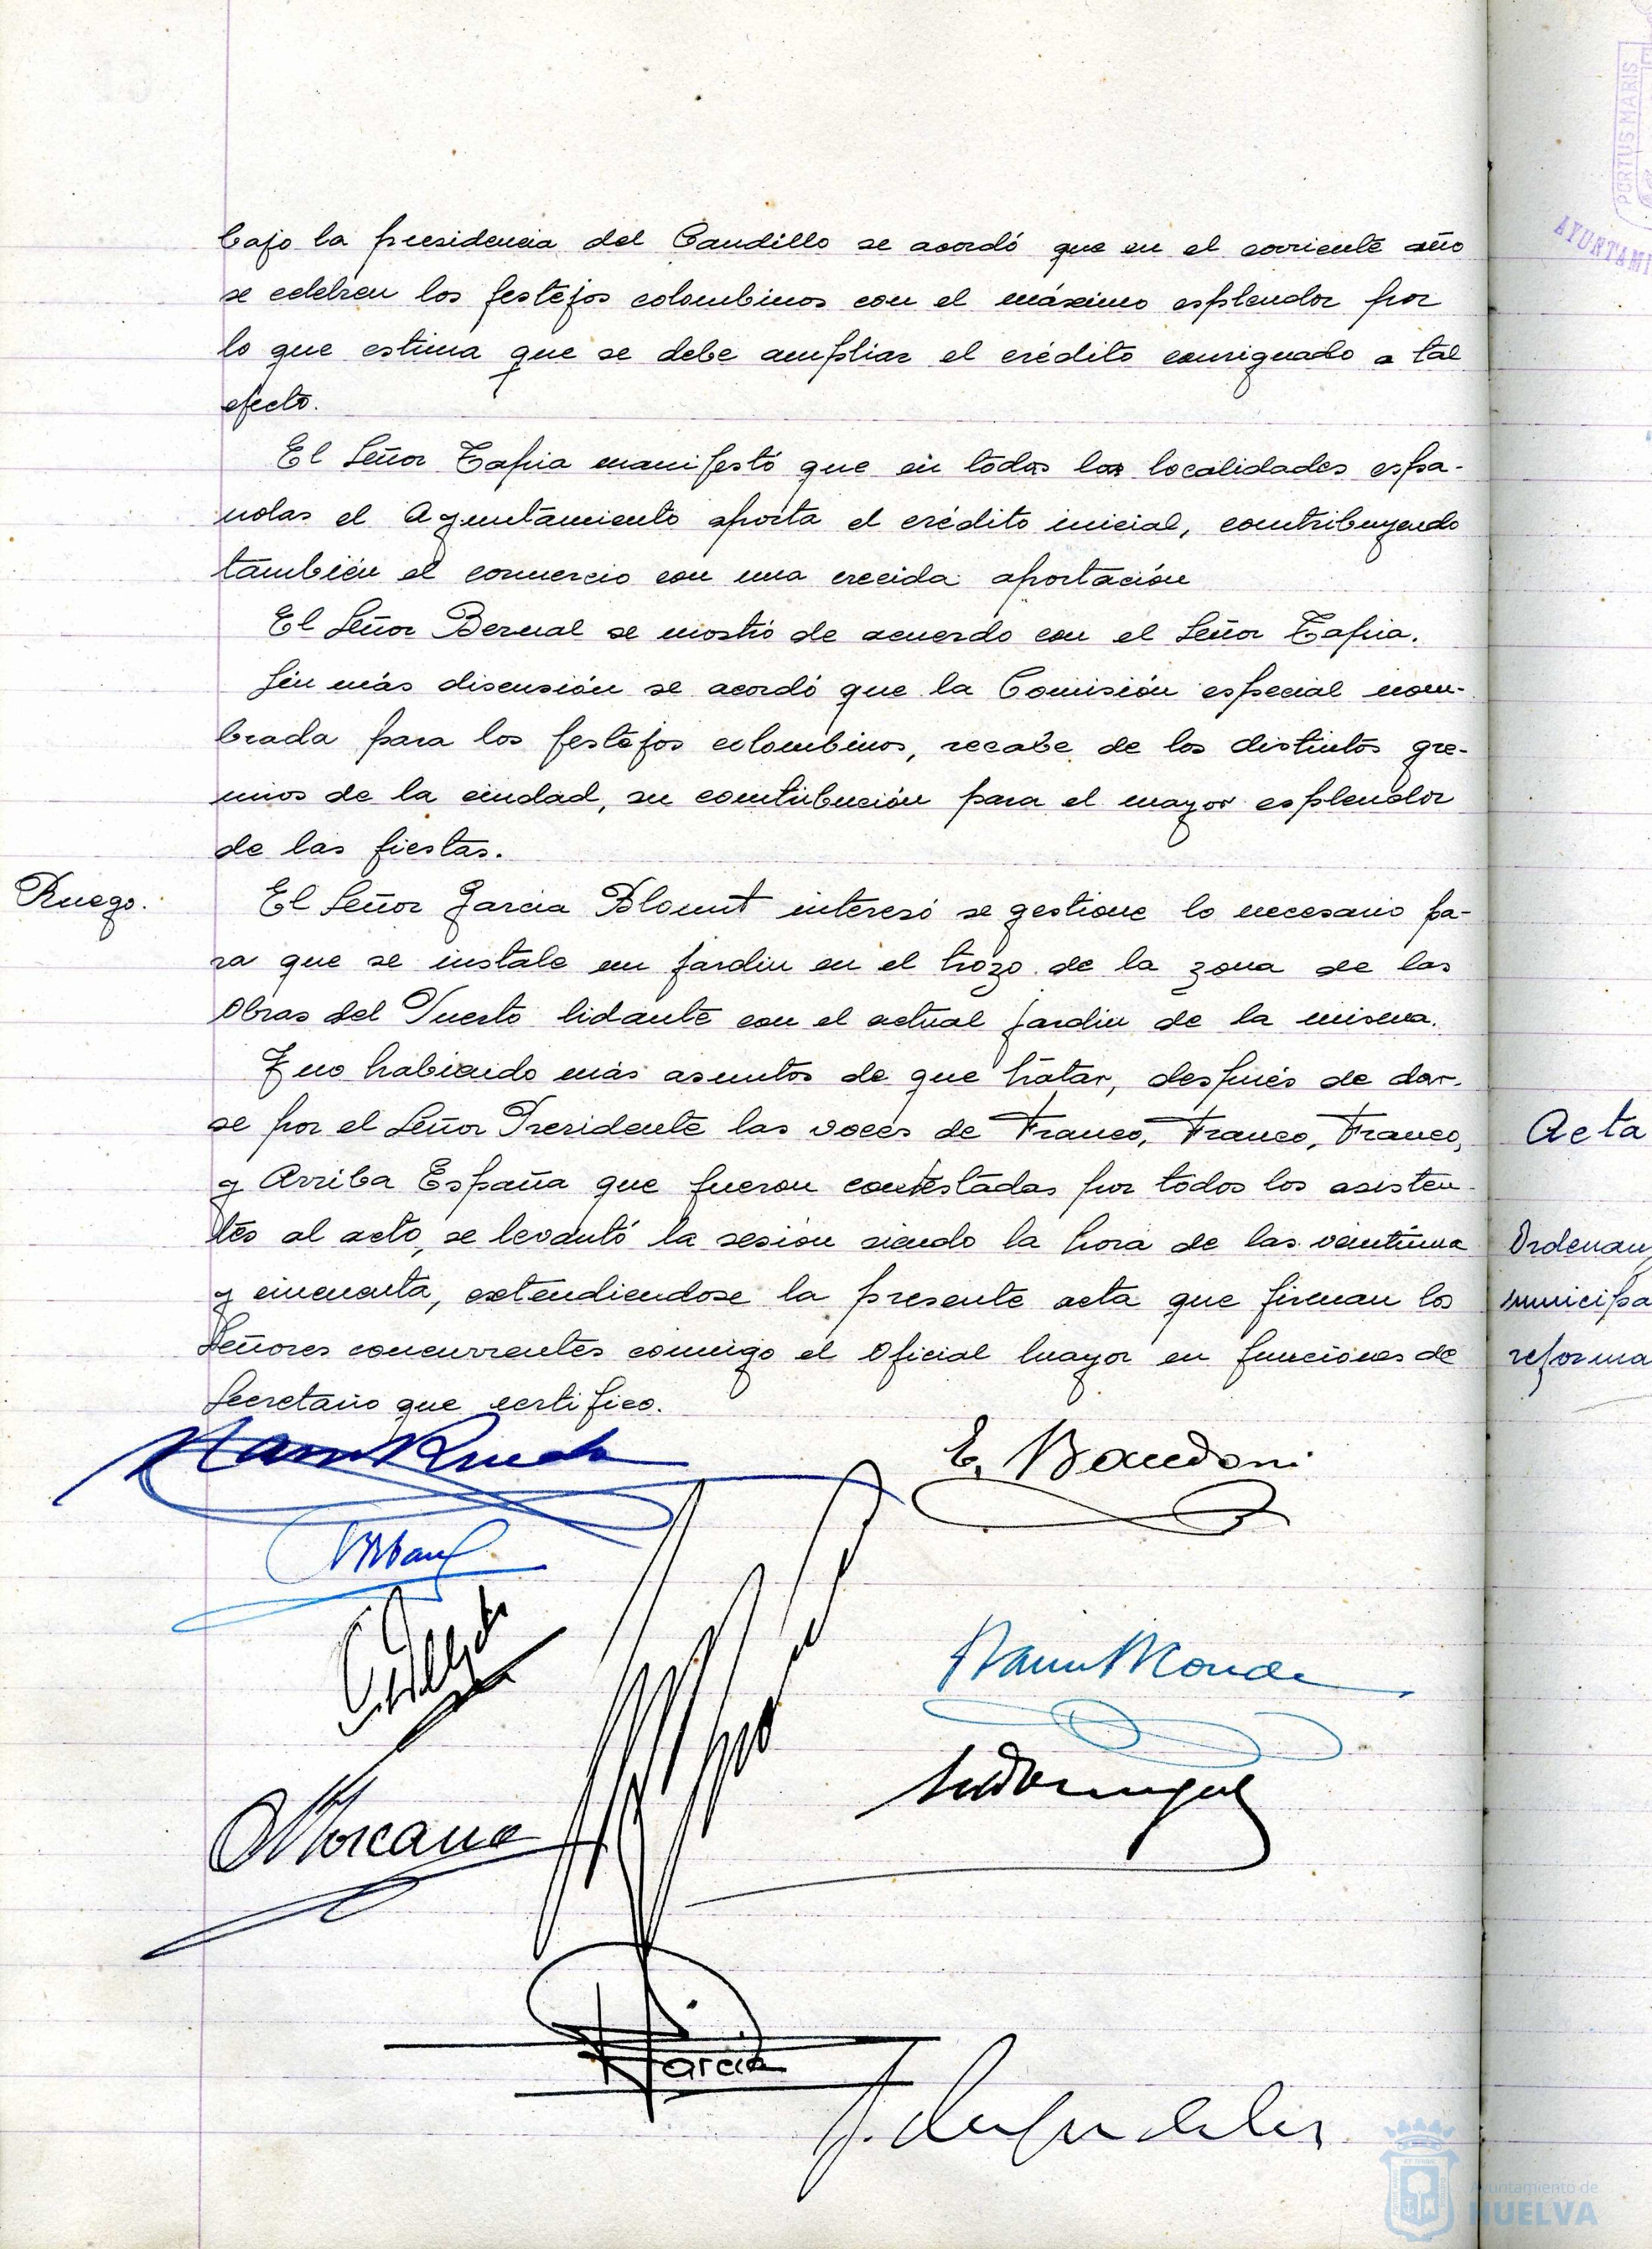 bajo la presidencia del Caudillo se acordó que en el corriente año
se celebren los festejos colombinos con el máximo esplendor por
lo que estima que se debe ampliar el crédito consignado a tal
efecto.
El Señor Tapia manifestó que en todas las localidades espa-
nolas el Ayuntamiento aporta el crédito inicial, contribuyendo
también el comercio con una crecida aportación
El Señor Bernal se mostró de acuerdo con el Señor Tapia.
Sin más discusión se acordó que la Comisión especial nom-
brada para los festejos colombinos, recabe de los distintos gre-
mios de la ciudad, su contribución para el mayor esplendor
de las fiestas.
Ruego.
El Señor Garcia Blount interesó se gestione lo necesario pa-
ra que se instale un jardin en el trozo de la zona de las
Obras del Puerto lidante con el actual jardin de la misma.
Y no habiendo más asuntos de que tratar, después de dar-
se por el Señor Presidente las voces de Franco, Franco, Franco,
y Arriba España que fueron contestadas por todos los asisten-
tes al acto, se levantó la sesión siendo la hora de las veintiuna
y cincuenta, extendiendose la presente acta que firman los
Señores concurrentes conmigo el Oficial Mayor en funciones de
Secretario que certifico.
E. Baudoni
Garcia
PORTUS MARIS
AYUNTAMI
Acta
Ordenanz
municipa
reforma
Ayuntamiento de
HUELVA